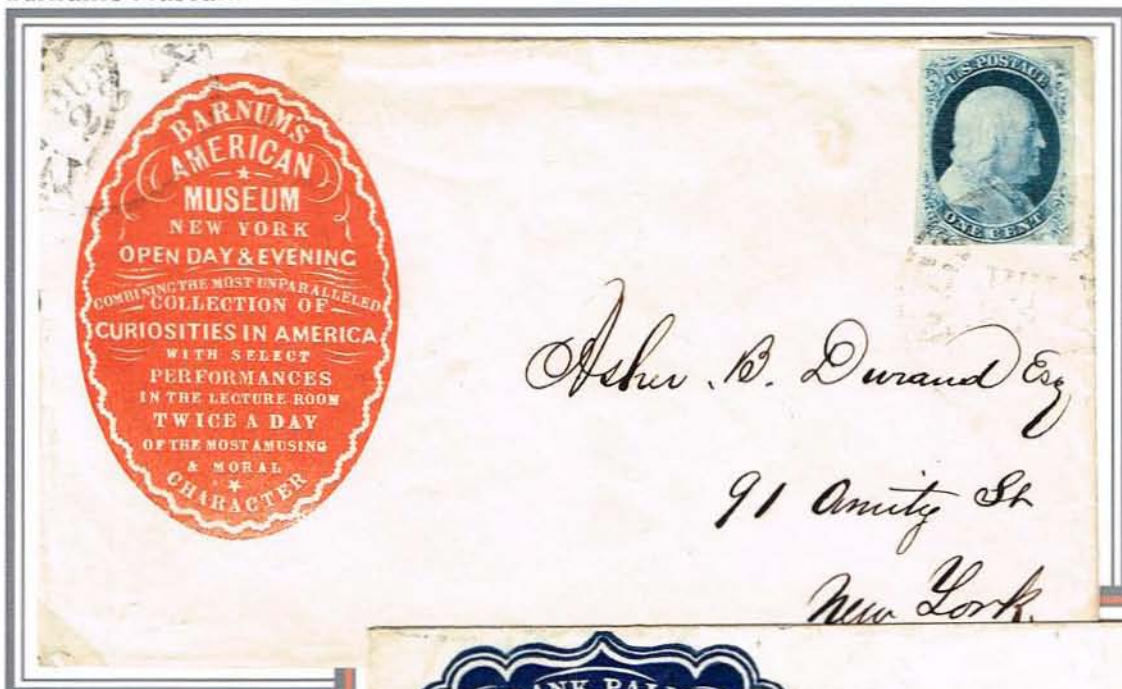 BARNUM'S
AMERICAN
MUSEUM
NEW YORK
OPEN DAY & EVENING
COMBINING THE MOST UNPARALLELED
COLLECTION OF
CURIOSITIES IN AMERICA
WITH SELECT
PERFORMANCES
IN THE LECTURE ROOM
TWICE A DAY
OF THE MOST AMUSING
& MORAL
CHARACTER
U.S. POSTAGE
ONE CENT
Asher. B. Durand Esq
91 Amity St
New York.